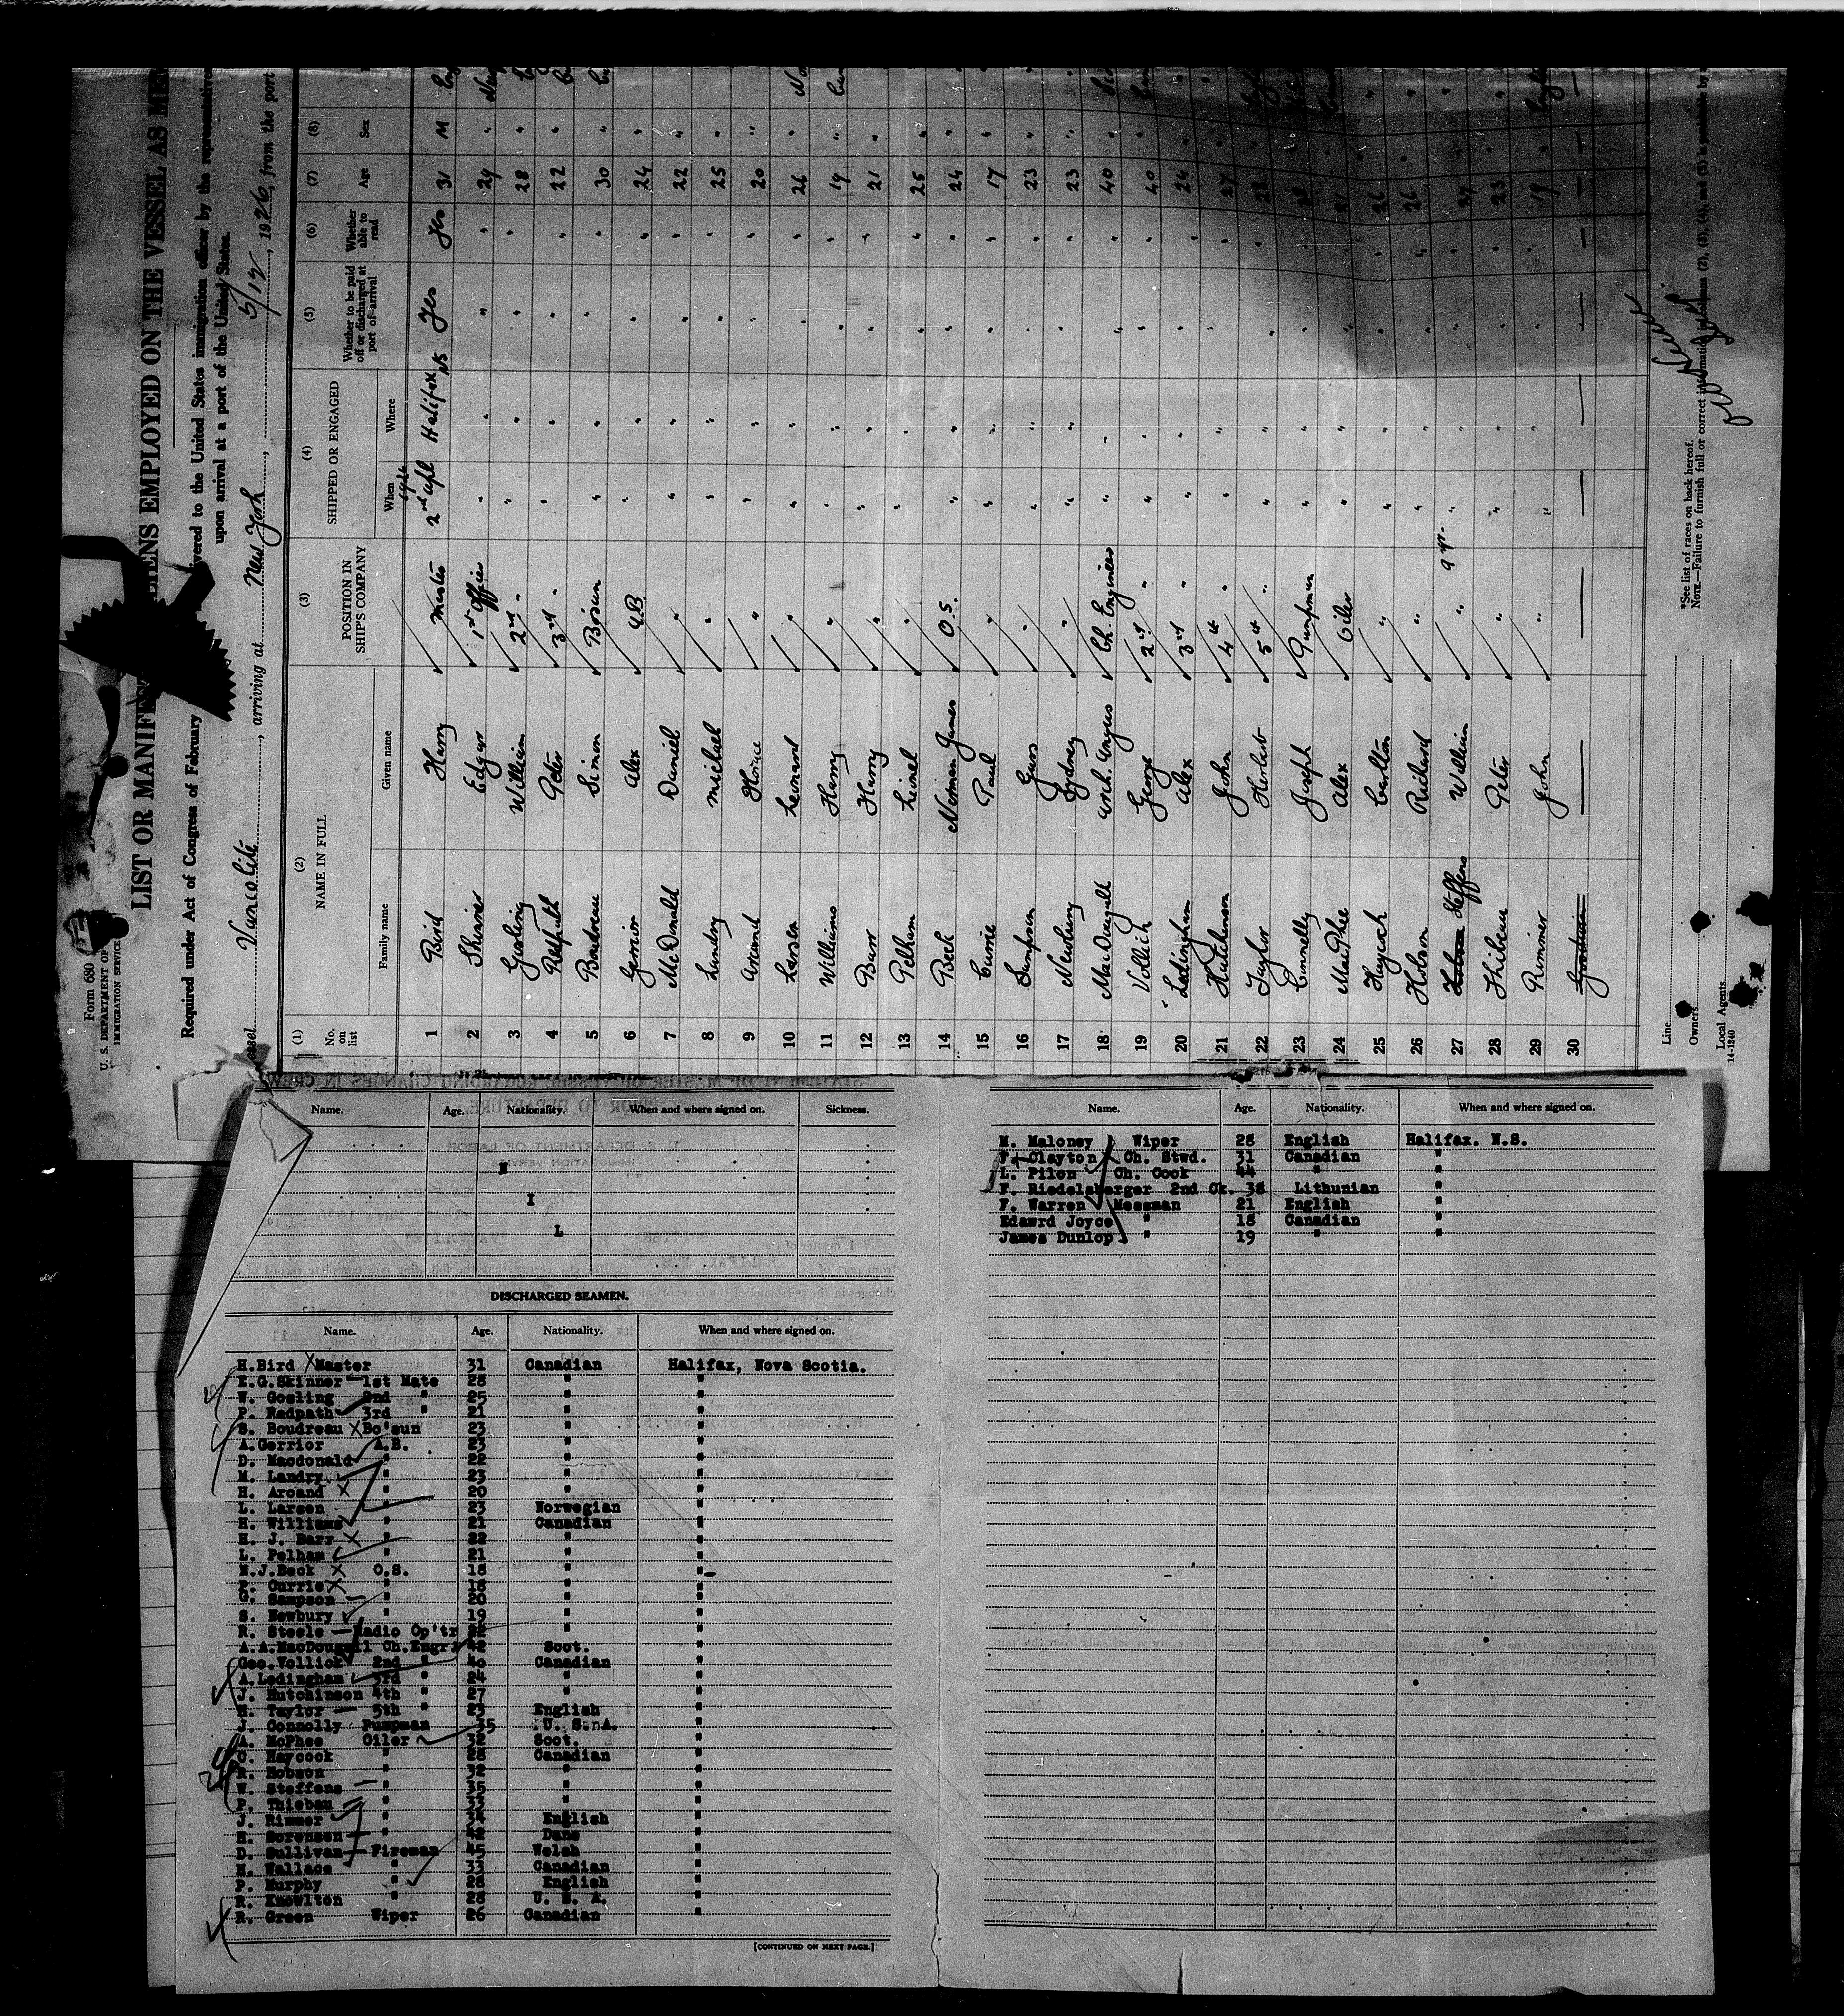 Form 680
U. S. DEPARTMENT OF
IMMIGRATION SERVICE
LIST OR MANIFE ENS EMPLOYED ON THE VESSEL AS ME
Required under Act of Congress of February vered to the United States immigration officer by the representative
upon arrival at a port of the United States.
essel Vancolite, arriving at New York, 5/12, 1926, from the port
(1) (2) (3) (4) (5) (6) (7) (8)
No. on list NAME IN FULL POSITION IN SHIP'S COMPANY SHIPPED OR ENGAGED Whether to be paid off or discharged at port of arrival Whether able to read Age Sex
Family name Given name When Where
1 Bird Harry Master 2nd Apl 1926 Halifax NS Yes Yes 31 M
2 Skinner Edgar 1st Officer " " " " 29 "
3 Gosling William 2nd " " " " " 28 "
4 Redpath Peter 3rd " " " " " 22 "
5 Boudreau Simon Bosun " " " " 30 "
6 Gerrior Alex A.B. " " " " 24 "
7 McDonald Daniel " " " " " 22 "
8 Landry Michael " " " " " 25 "
9 Arcand Horace " " " " " 20 "
10 Larsen Leonard " " " " " 26 "
11 Williams Harry " " " " " 19 "
12 Barr Harry " " " " " 21 "
13 Pelham Lionel " " " " " 25 "
14 Beck Norman James O.S. " " " " 24 "
15 Currie Paul " " " " " 17 "
16 Sampson Guss " " " " " 23 "
17 Newbury Sydney " " " " " 23 "
18 MacDougall Arch. Angus Ch. Engineer " " " " 40 "
19 Vollick George 2nd " " " " " 40 "
20 Ledingham Alex 3rd " " " " " 24 "
21 Hutchinson John 4th " " " " " 27 "
22 Taylor Herbert 5th " " " " " "
23 Connelly Joseph Pumpman " " " " "
24 MacPhee Alex Oiler " " " " "
25 Haycock Carlton " " " " " 26 "
26 Hobson Richard " " " " " 26 "
27 Hobson Steffens William " " " " " "
28 Thibeau Peter " " " " " 23 "
29 Rimmer John " " " " " 19 "
30
Line
Owners
Local Agents
14-1240
*See list of races on back hereof.
NOTE.—Failure to furnish full or correct information (2), (3), (4), and (5) is punishable by
Name. Age. Nationality. When and where signed on. Sickness.
N
I
L
DISCHARGED SEAMEN.
Name. Age. Nationality. When and where signed on.
H.Bird Master 31 Canadian Halifax, Nova Scotia.
E.G.Skinner 1st Mate 28 " "
W. Gosling 2nd " 25 " "
P. Redpath 3rd " 21 " "
S. Boudreau Bo'sun 23 " "
A.Gerrior A.B. 23 " "
D. Macdonald " 22 " "
M. Landry " 23 " "
H. Arcand " 20 " "
L. Larsen " 23 Norwegian "
H. Williams " 21 Canadian "
H. J. Barr " 22 " "
L. Pelham " 21 " "
N.J.Beck O.S. 18 " "
P. Currie " 18 " "
G. Sampson " 20 " "
S. Newbury " 19 " "
R. Steele Radio Op'tr " "
A.A.MacDougall Ch.Engr. 42 Scot. "
Geo.Vollick 2nd " 40 Canadian "
A.Ledingham 3rd " 24 " "
J. Hutchinson 4th " 27 " "
H. Taylor 5th " 23 English "
J. Connolly Pumpman 35 U. S. A. "
A. McPhee Oiler 32 Scot. "
C. Haycock " 28 Canadian "
R. Hobson " 32 " "
W. Steffens " 35 " "
P. Thiebau " 33 " "
J. Rimmer " 34 English "
H. Sorensen " 42 Dane "
D. Sullivan Fireman 45 Welsh "
H. Wallace " 33 Canadian "
P. Murphy " 28 English "
R. Knowlton " 28 U. S. A. "
R. Green Wiper 26 Canadian "
[CONTINUED ON NEXT PAGE.]
Name. Age. Nationality. When and where signed on.
M. Maloney Wiper 28 English Halifax. N.S.
F. Clayton Ch. Stwd. 31 Canadian "
L. Pilon Ch. Cook 44 " "
F. Riedelsberger 2nd Ck. 38 Lithunian "
F. Warren Messman 21 English "
Edawrd Joyce " 18 Canadian "
James Dunlop " 19 " "